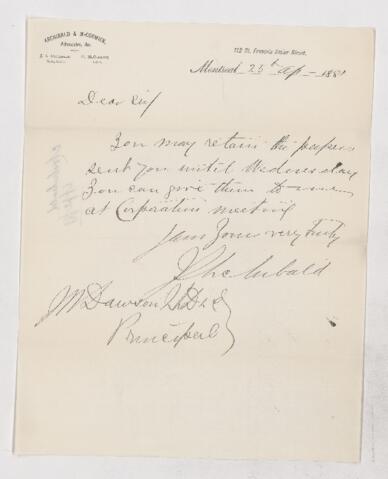 ARCHIBALD & McCORMICK,
Advocates, &c.
112 St. Francois Xavier Street.
Montreal, 25th Ap 1881
Dear Sir
You may retain the papers
sent you until Wednesday
You can give them to me
at Corporation meeting
I am Yours very truly
J S Archibald
J W Dawson LLD &c
Principal